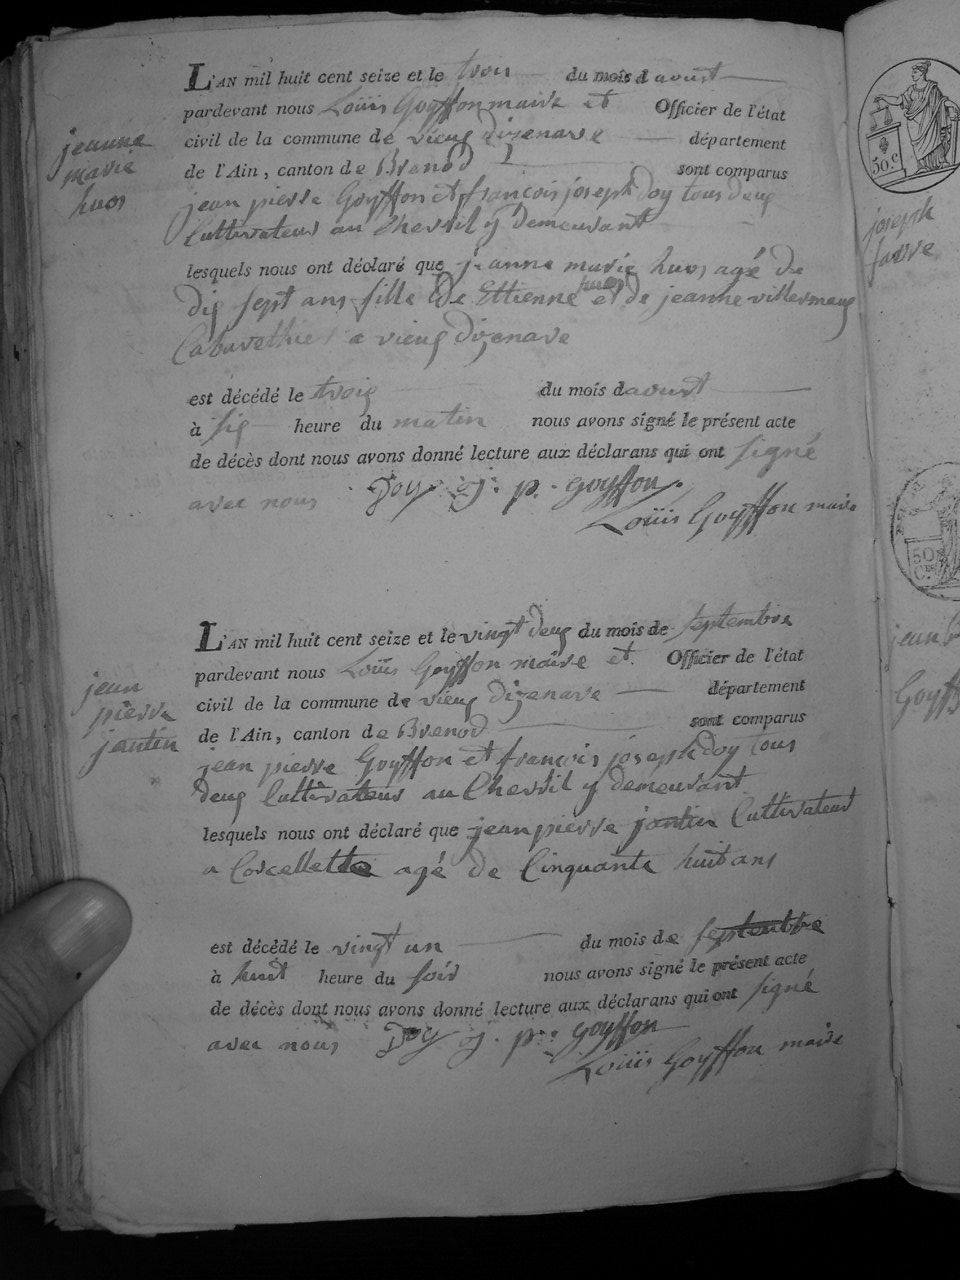 jeanne
marie
huos
L'AN mil huit cent seize et le trois du mois d aoust
pardevant nous Loüis Goyffon maire et Officier de l'état
civil de la commune de vieux dizenave département
de l'Ain, canton de Brenod sont comparus
jean pierre Goyffon et françois joseph doy tous deux
Cultivateurs au Chevril y demeurant
lesquels nous ont déclaré que jeanne marie huos agé de
dix sept ans fille de Ettienne huos et de jeanne villermaux
a vieux dizenave
est décédé le trois du mois d aoust
à six heure du matin nous avons signé le présent acte
de décès dont nous avons donné lecture aux déclarans qui ont signé
avec nous Doy j. p. goyffon.
Loüis Goyffon maire
jean
pierre
jantin
L'AN mil huit cent seize et le vingt deux du mois de septembre
pardevant nous Loüis Goyffon maire et Officier de l'état
civil de la commune de vieux dizenave département
de l'Ain, canton de Brenod sont comparus
jean pierre Goyffon et françois joseph doy tous
deux Cultivateurs au Chevril y demeurant
lesquels nous ont déclaré que jean pierre jantin Cultivateur
a Corcellette agé de Cinquante huit ans
est décédé le vingt un du mois de septembre
à huit heure du soir nous avons signé le présent acte
de décès dont nous avons donné lecture aux déclarans qui ont signé
avec nous Doy j. p. goyffon
Loüis Goyffon maire
50.c
joseph
favre
50
Ces
jean
Goyff